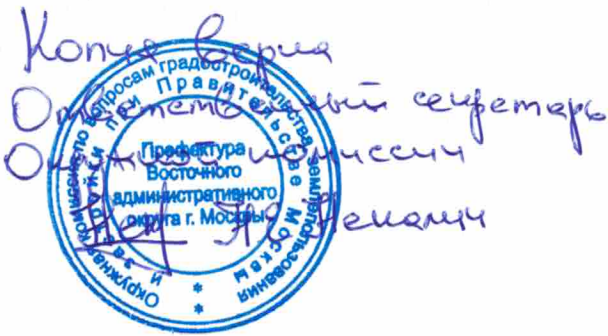 Копия верна
Ответственный секретарь
Окружной комиссии
Окружная комиссия по вопросам градостроительства, землепользования
и застройки при Правительстве Москвы
Префектура
Восточного
административного
округа г. Москвы